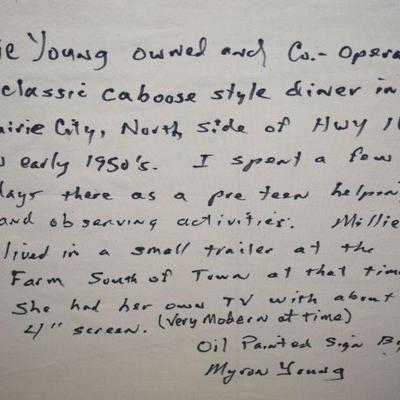 ie Young owned and Co.- Opera
classic caboose style diner in
airie City, North side of Hwy 1
early 1950's. I spent a few
days there as a pre teen helpin
and observing activities. Millie
lived in a small trailer at the
Farm South of Town at that time
She had her own TV with about
4" screen. (Very Modern at time)
Oil Painted Sign By
Myron Young